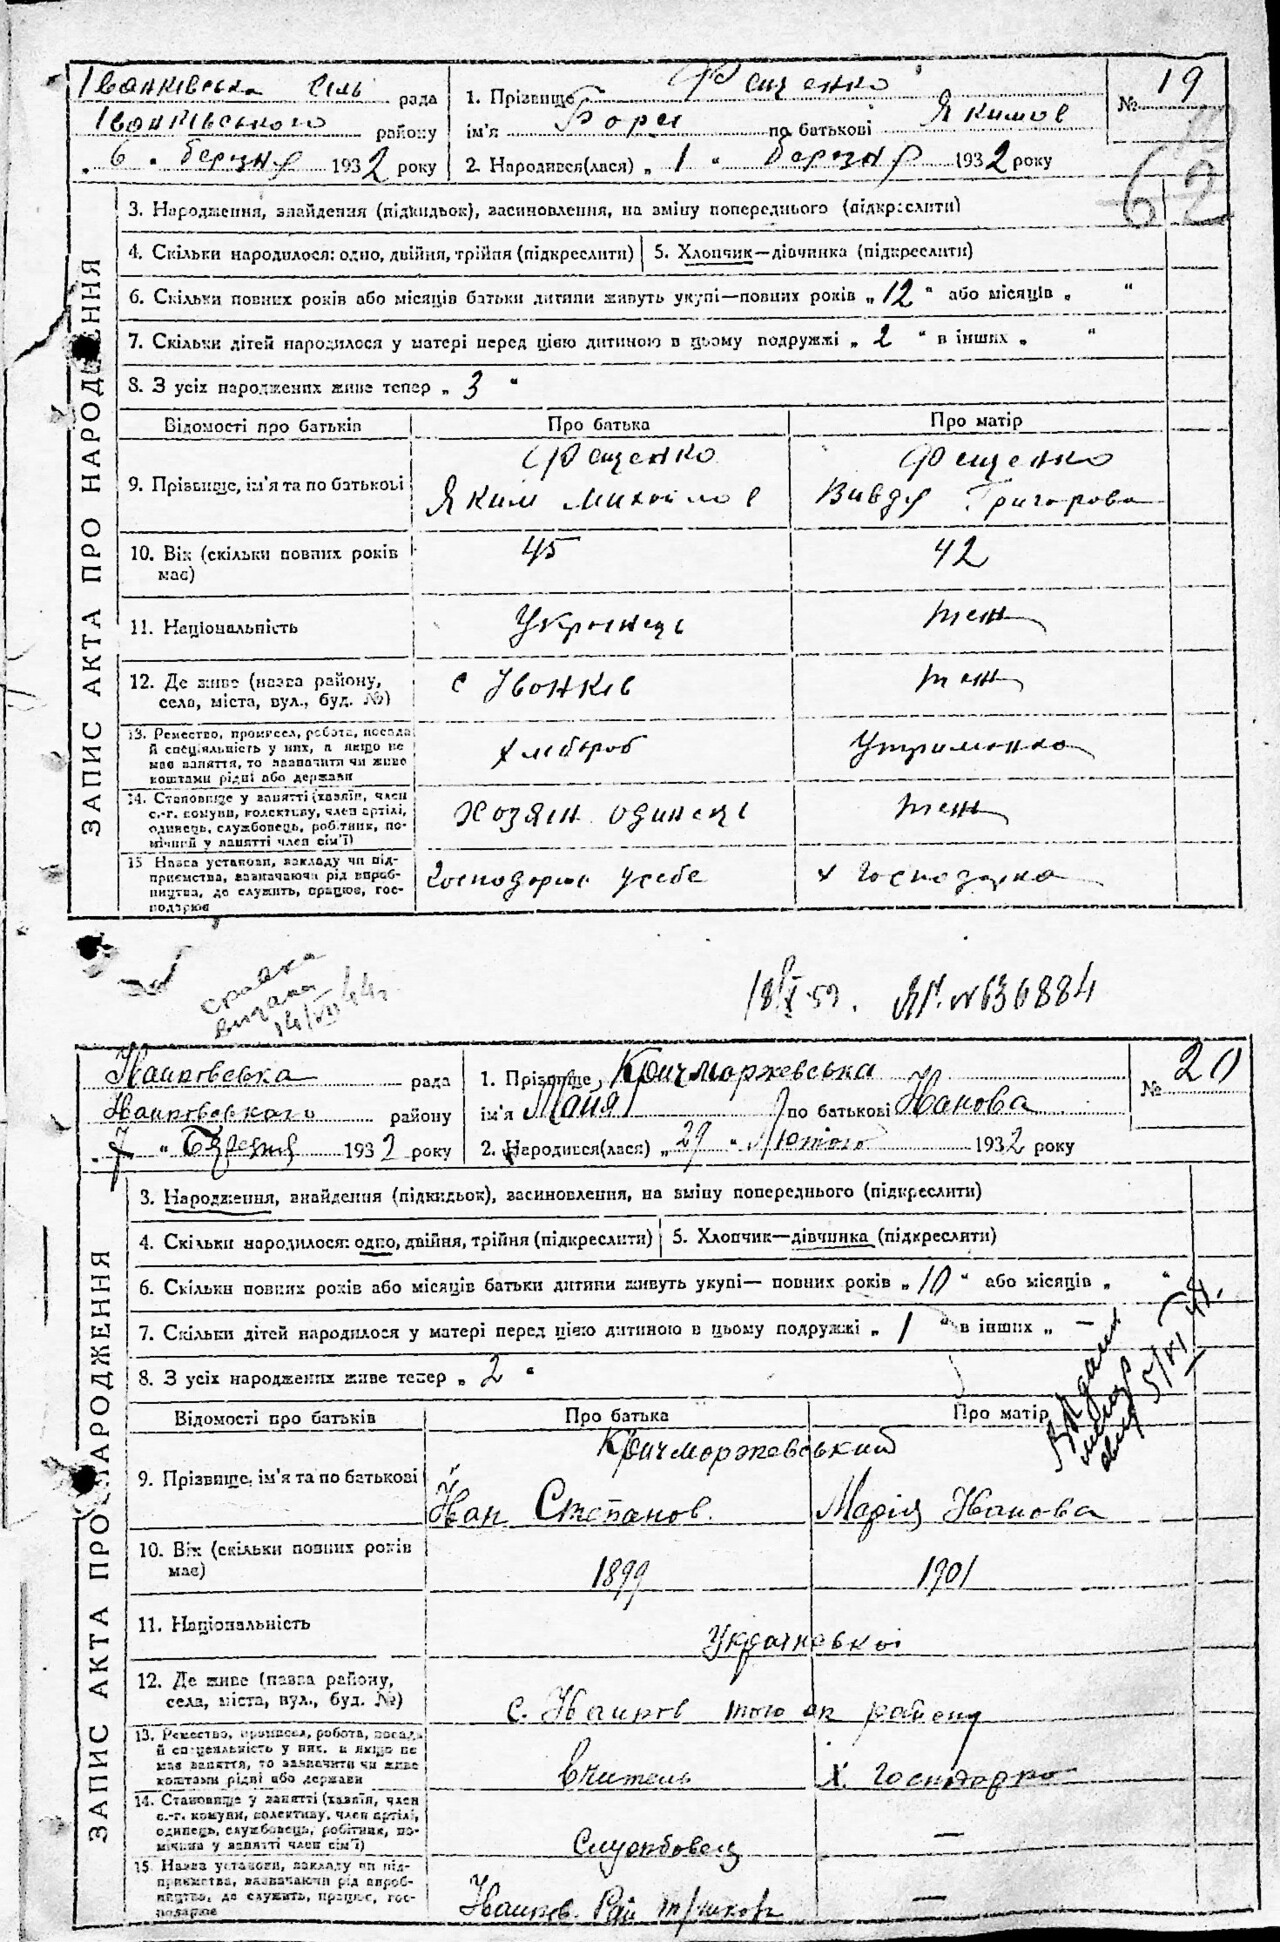 Іванківська сіль рада
Іванківського району
„ 6 „ березня 1932 року
1. Прізвище Фещенко
ім'я Борис по батькові Якимов
2. Народився(лася) „ 1 „ березня 1932 року
№ 19
62
ЗАПИС АКТА ПРО НАРОДЖЕННЯ
3. Народження, знайдення (підкидьок), засиновлення, на зміну попереднього (підкреслити)
4. Скільки народилося: одно, двійня, трійня (підкреслити) 5. Хлопчик—дівчинка (підкреслити)
6. Скільки повних років або місяців батьки дитини живуть укупі—повних років „ 12 “ або місяців „ “
7. Скільки дітей народилося у матері перед цією дитиною в цьому подружжі „ 2 “ в інших „ “
8. З усіх народжених живе тепер „ 3 “
Відомості про батьків Про батька Про матір
Фещенко Фещенко
9. Прізвище, ім'я та по батькові Яким Михайлов Вивдя Григорова
10. Вік (скільки повних років має) 45 42
11. Національність Українець теж
12. Де живе (назва району, села, міста, вул., буд. №) с Іванків теж
13. Ремество, промисел, робота, посада й спеціяльність у них, а якщо не має заняття, то зазначити чи живе коштами рідні або держави Хлібороб Утриманка
14. Становище у занятті (хазяїн, член с.-г. комуни, колективу, член артілі, одинець, службовець, робітник, помічний у занятті член сім'ї) Хозяїн одинець теж
15 Назва установи, закладу чи підприємства, зазначаючи рід виробництва, де служить, працює, господарює господарює у себе х господарка
справка
видана
14/VII 44 г.
18/X 59. № 636884
Іванковська рада
Іванковского району
„ 7 “ Березня 1932 року
1. Прізвище Кричморжевська
ім'я Майя по батькові Іванова
2. Народився(лася) „ 29 “ Лютого 1932 року
№ 20
ЗАПИС АКТА ПРО НАРОДЖЕННЯ
3. Народження, знайдення (підкидьок), засиновлення, на зміну попереднього (підкреслити)
4. Скільки народилося: одно, двійня, трійня (підкреслити) 5. Хлопчик—дівчинка (підкреслити)
6. Скільки повних років або місяців батьки дитини живуть укупі— повних років „ 10 “ або місяців „ “
7. Скільки дітей народилося у матері перед цією дитиною в цьому подружжі „ 1 “ в інших „ —
8. З усіх народжених живе тепер „ 2 “
Відомості про батьків Про батька Про матір
Кричморжевський
9. Прізвище, ім'я та по батькові Іван Степанов. Марія Іванова
10. Вік (скільки повних років має) 1899 1901
11. Національність Українські
12. Де живе (назва району, села, міста, вул., буд. №) с. Іванков того ж району
13. Ремество, промисел, робота, посада й спеціяльність у них, а якщо не має заняття, то зазначити чи живе коштами рідні або держави Вчитель х. господарка
14. Становище у занятті (хазяїн, член с.-г. комуни, колективу, член артілі, одинець, службовець, робітник, помічний у занятті член сім'ї) Службовец —
15. Назва установи, закладу чи підприємства, зазначаючи рід виробництва, де служить, працює, господарює Іванков. Рай —